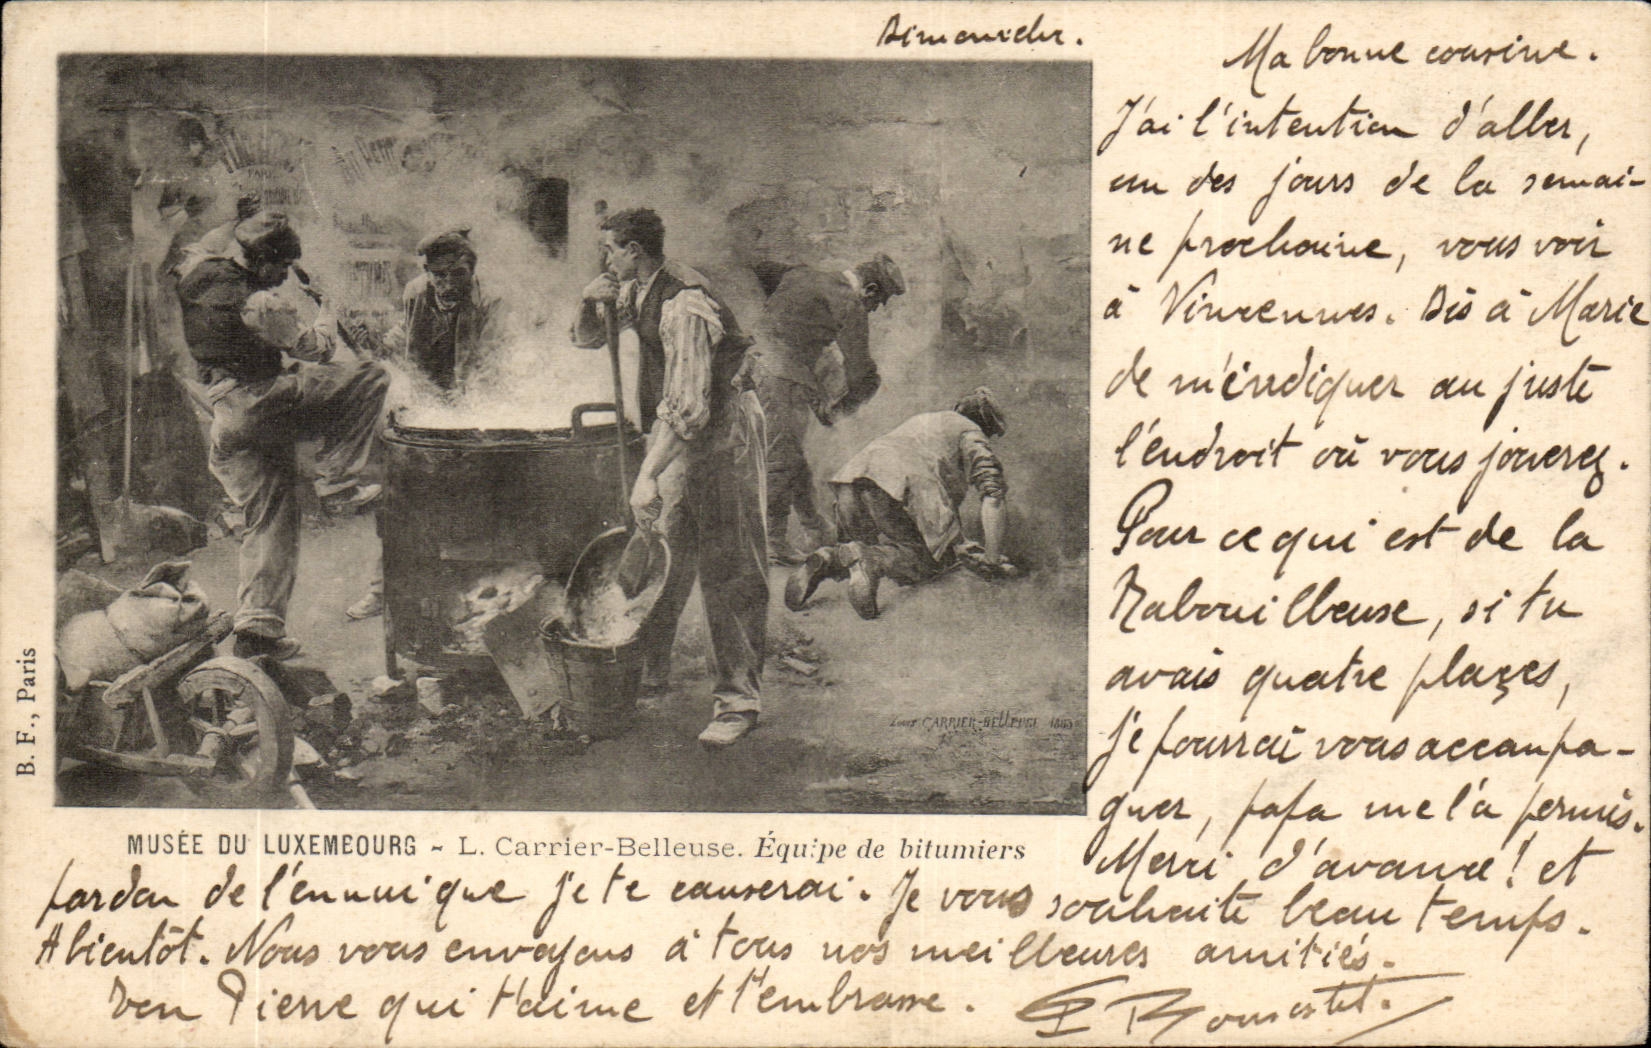 Dimanche.
Ma bonne cousine.
J'ai l'intention d'aller,
un des jours de la semai-
ne prochaine, vous voir
à Vincennes. Dis à Marie
de m'indiquer au juste
l'endroit où vous jouerez.
Pour ce qui est de la
Rabouilleuse, si tu
avais quatre plaçes,
je pourrai vous accompa-
gner, papa me l'a permis.
Merci d'avance! et
pardon de l'ennui que je te causerai. Je vous souhaite beau temps.
A bientôt. Nous vous envoyons à tous nos meilleures amitiés.
Ton Pierre qui t'aime et t'embrasse.
B. F., Paris
PARIS
LOUIS CARRIER-BELLEUSE
MUSÉE DU LUXEMBOURG - L. Carrier-Belleuse. Équipe de bitumiers